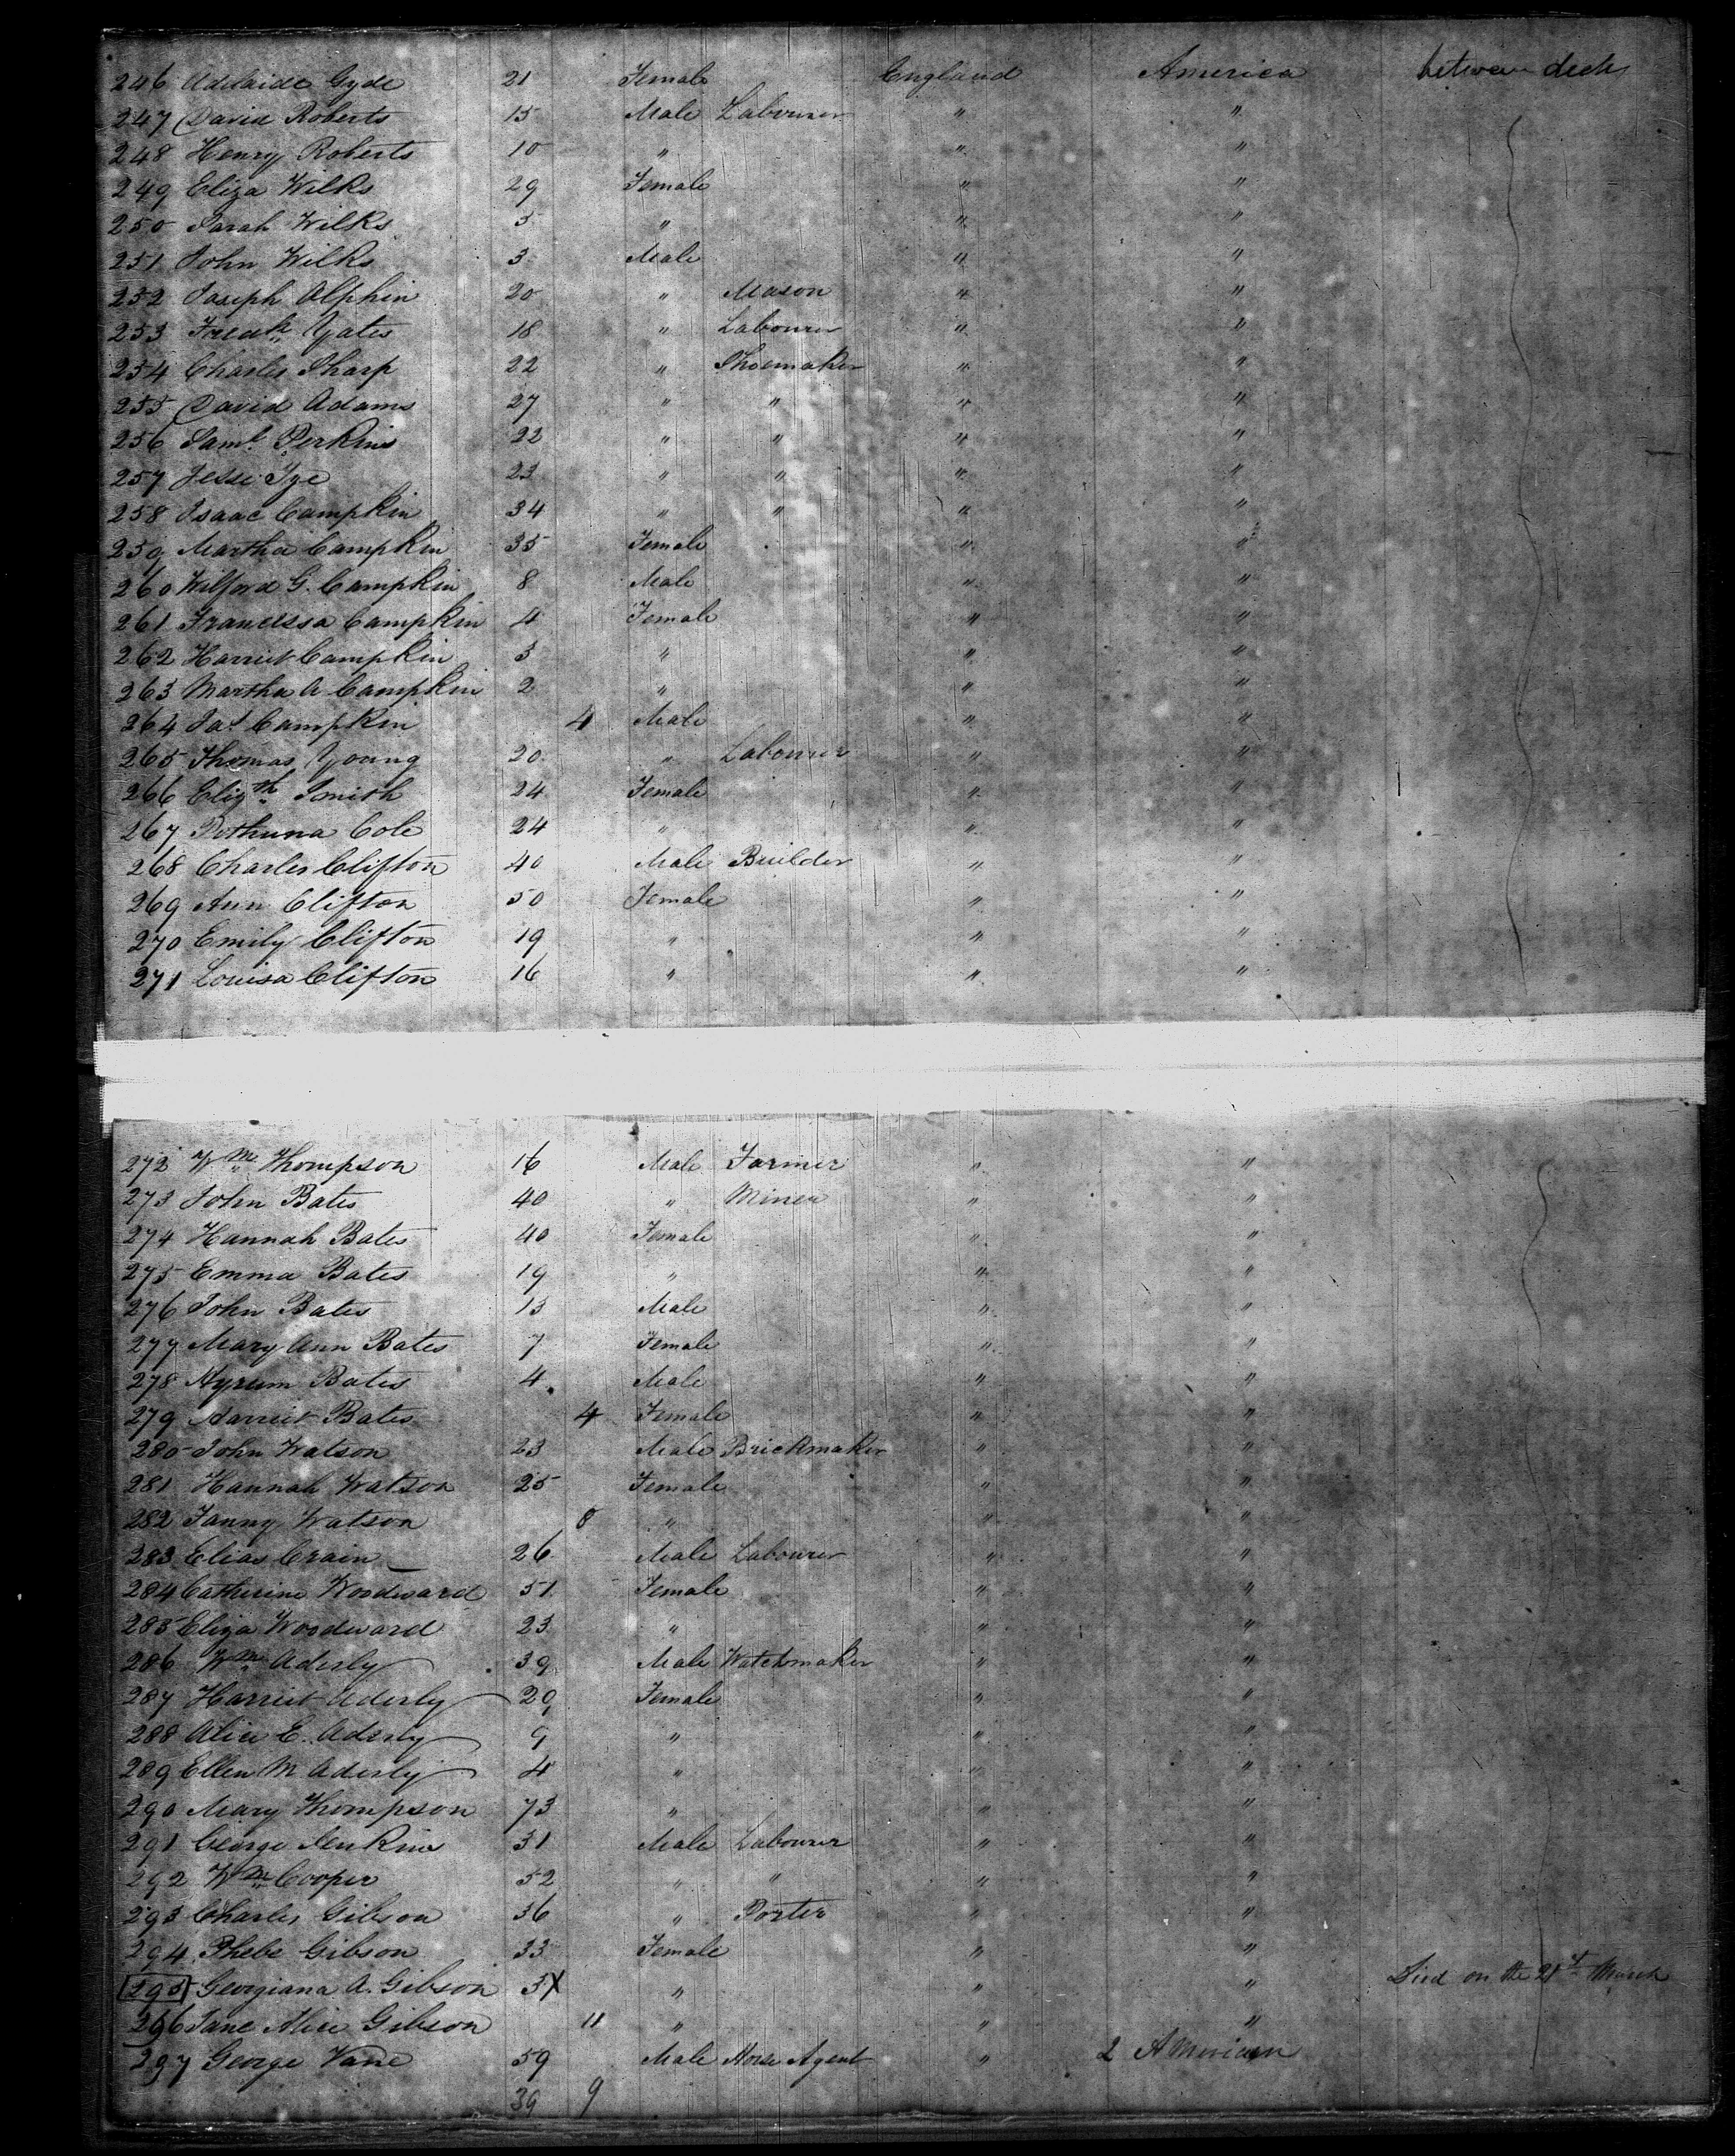 246 Adelaide Gyde 21 Female England America between decks
247 David Roberts 15 Male Labourer " "
248 Henry Roberts 10 " " "
249 Eliza Wilks 29 Female " "
250 Sarah Wilks 5 " " "
251 John Wilks 3 Male " "
252 Joseph Alphin 20 " Mason " "
253 Fredk Yates 18 " Labourer " "
254 Charles Sharp 22 " Shoemaker " "
255 David Adams 27 " " " "
256 Saml. Perkins 22 " " " "
257 Jesse Tye 23 " " " "
258 Isaac Campkin 34 " " " "
259 Martha Campkin 35 Female " "
260 Wilford G. Campkin 8 Male " "
261 Francissa Campkin 4 Female " "
262 Harriet Campkin 3 " " "
263 Martha A Campkin 2 " " "
264 Campkin 4 Male " "
265 Thomas Young 20 " Labourer " "
266 Elizth Smith 24 Female " "
267 Cole 24 " " "
268 Charles Clifton 40 Male Builder " "
269 Ann Clifton 50 Female " "
270 Emily Clifton 19 " " "
271 Louisa Clifton 16 " " "
272 Wm Thompson 16 Male Farmer " "
273 John Bates 40 " Miner " "
274 Hannah Bates 40 Female " "
275 Emma Bates 19 " " "
276 John Bates 13 Male " "
277 Mary Ann Bates 7 Female " "
278 Hyrum Bates 4 Male " "
279 Harriet Bates 4 Female " "
280 John Watson 23 Male Brickmaker " "
281 Hannah Watson 25 Female " "
282 Fanny Watson 8 " " "
283 Elias Crain 26 Male Labourer " "
284 Catherine Woodward 51 Female " "
285 Eliza Woodward 23 " " "
286 Wm Aderly 39 Male Watchmaker " "
287 Harriet Aderly 29 Female " "
288 Alice E. Aderly 9 " " "
289 Ellen M Aderly 4 " " "
290 Mary Thompson 73 " " "
291 George Jenkins 31 Male Labourer " "
292 Wm Cooper 52 " " " "
293 Charles Gibson 36 " Porter " "
294 Phebe Gibson 33 Female " "
295 Georgiana A. Gibson 3X " " " Died on the 21st March
296 Jane Alice Gibson 11 " " "
297 George Vane 59 Male Horse Agent " 2 American
39 9